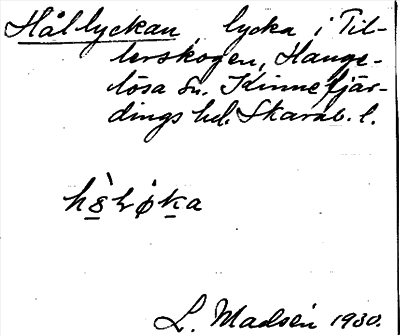 Hållyckan lycka i Til-
lerskogen, Hange-
lösa sn. Kinnefjär-
dings hd. Skarab. l.
L. Madsén 1930.